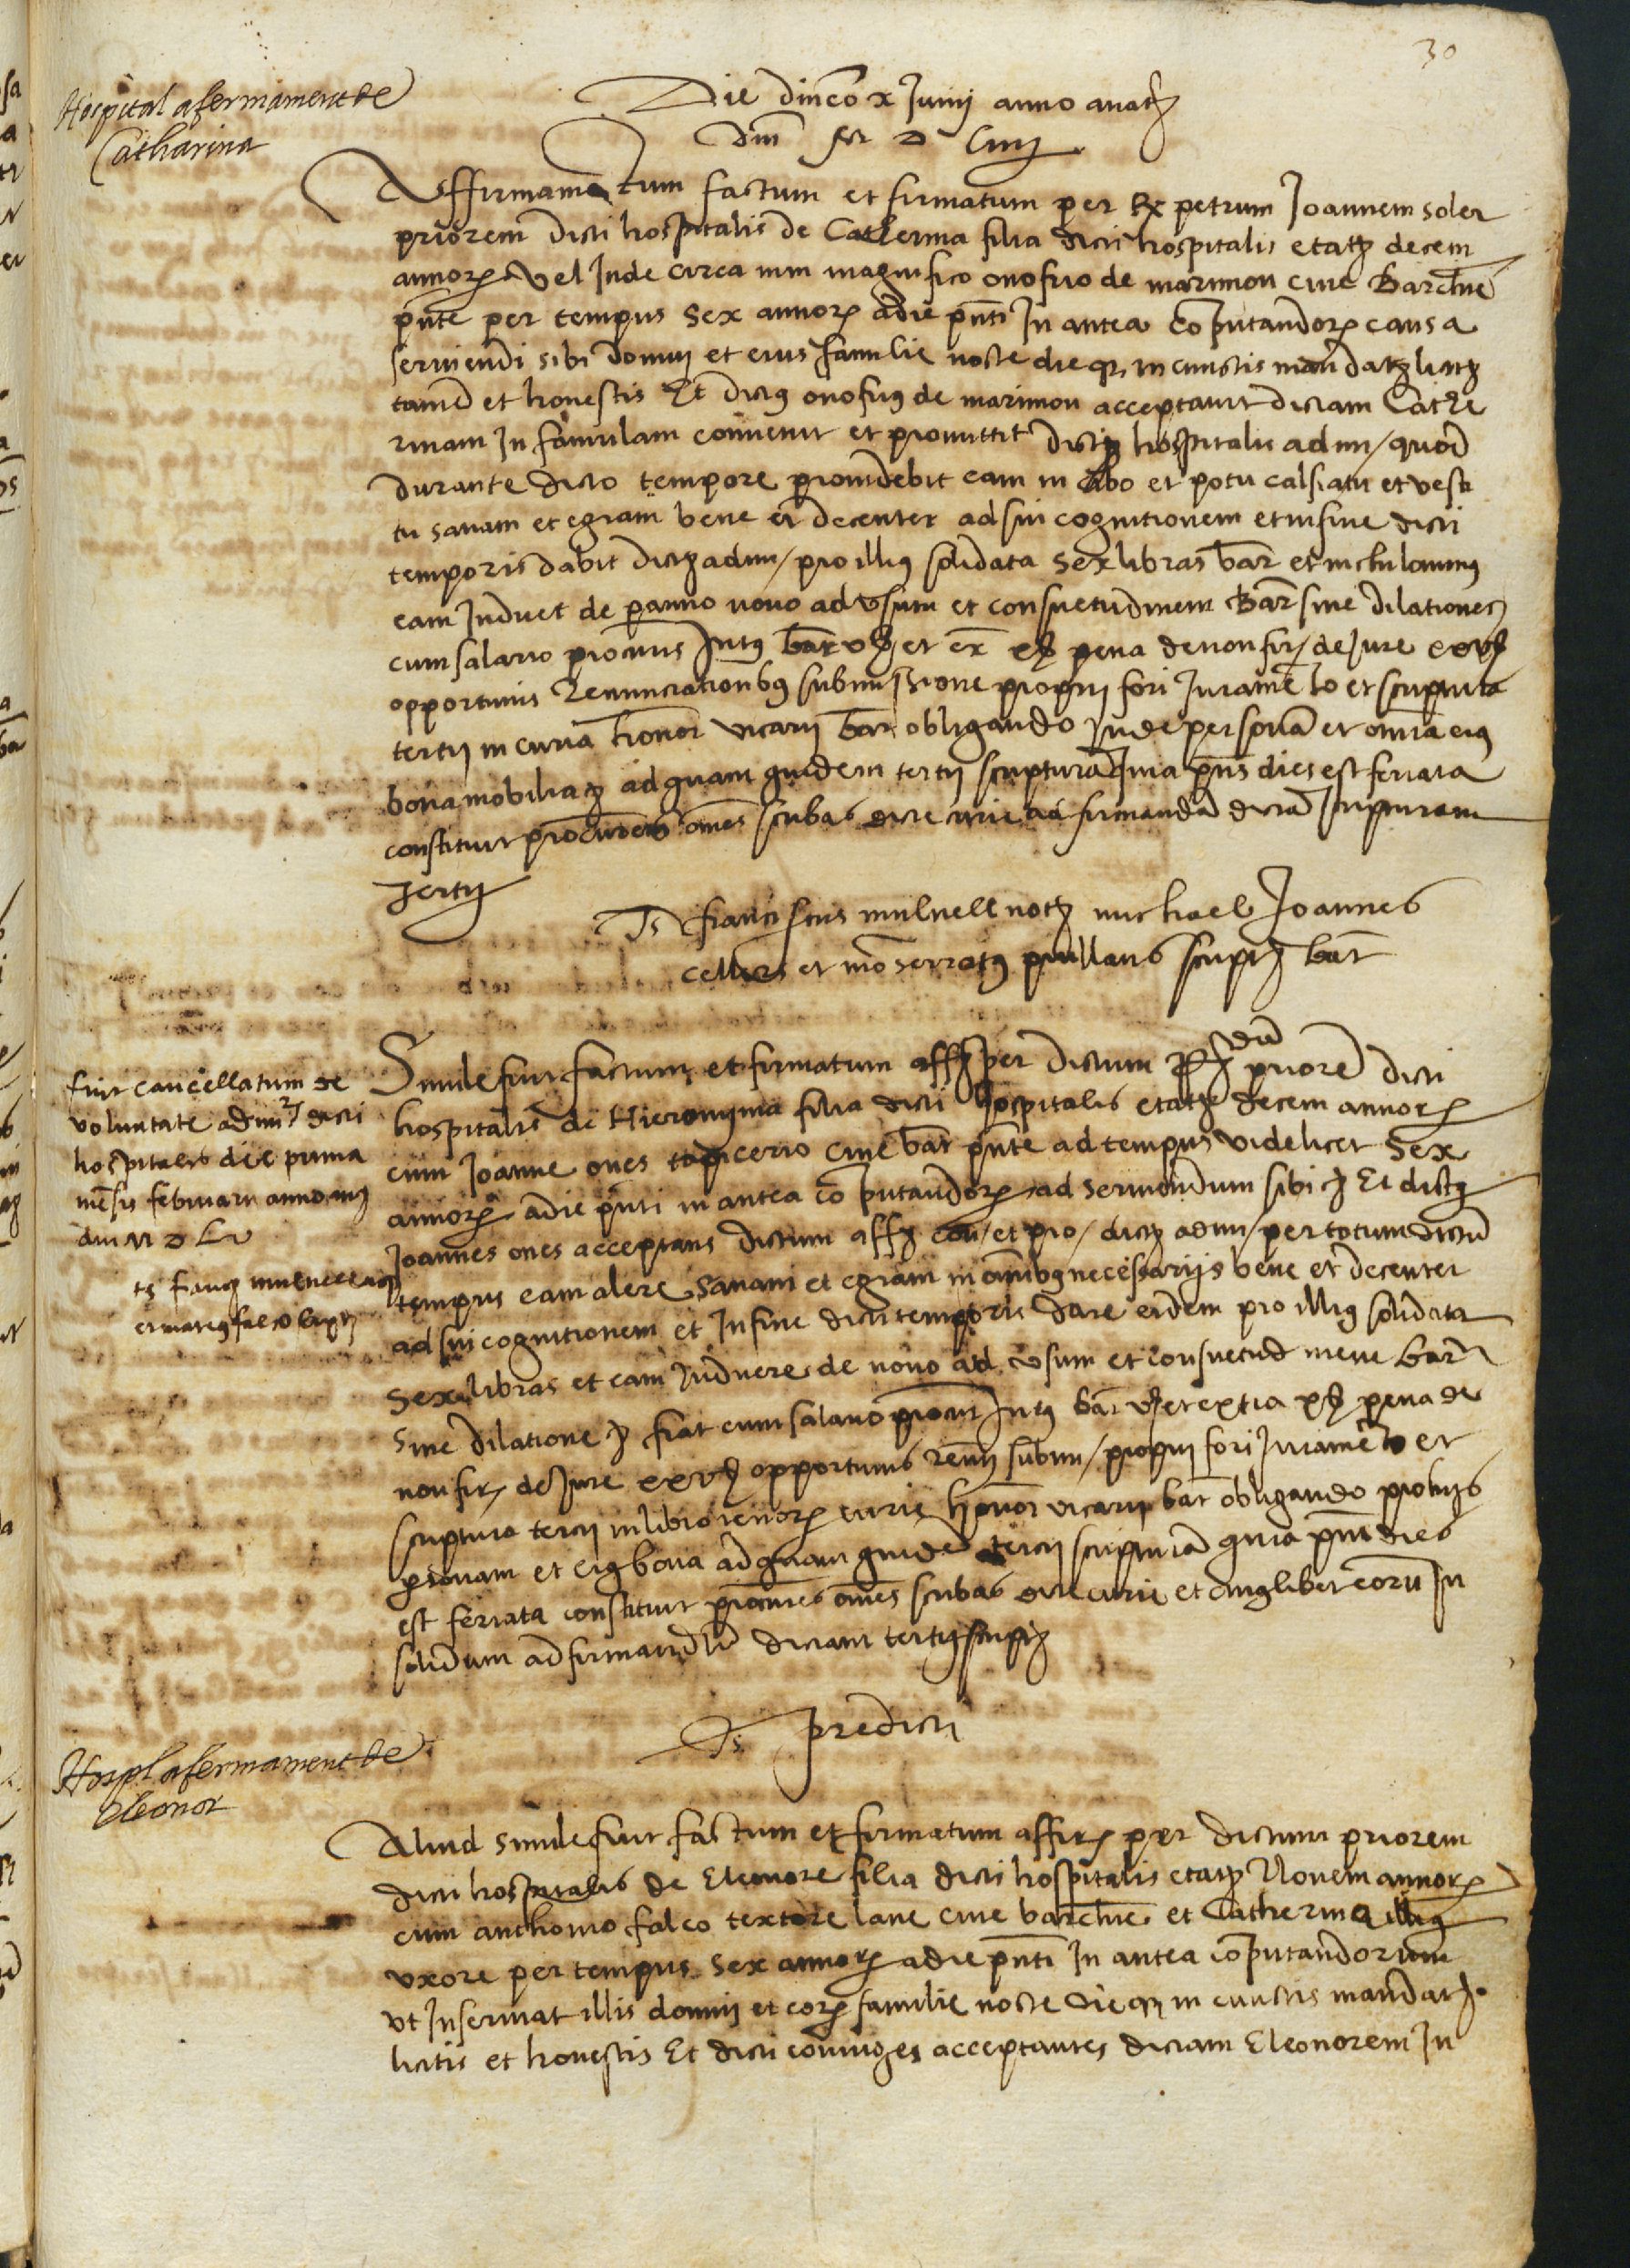 30
Hospital afermament de
Catharina
Die dmco x Junij anno a natz
Dni M D Liiij
Affirmamentum factum et firmatum per Rx petrum Joannem soler
priorem dicti hospitalis de Catherina filia dicti hospitalis etatz decem
annorz vel Inde circa cum magnifico onofrio de marimon cive Barchne
pnte per tempus sex annorz a die pnti In antea coputandorz causa
serviendi sibi domuj et eius familie nocte dieqz in cunctis mandatz licitz
tamen et honestis Et dictus onofrius de marimon acceptavit dictam Cathe
rinam In famulam convenit et promittit dictis hospitalis admi/ quod
durante dicto tempore providebit eam in cibo et potu calsiatu et vesti
tu sanam et egram bene et decenter ad sui cognitionem et in fine dicti
temporis dabit dictz admi/ pro illius solidata sex libras bar et nichilominus
eam Induet de panno novo ad usum et consuetudinem Bar sine dilatione z
cum salario procuris Intus bar v ß et ex x ß pena de non firz de Jure xxv ß
opportunis Renunciationibus submissione proprij fori Jurameto et scriptura
tertij in curia honor vicarij bar obligando Inde persona et omnia eius
bona mobilia z ad quam quidem tertij scriptura quia pns dies est feriata
constituit procures omes scribas dicte curie ad firmanda dicta scripturam
Tertij
Ts franciscus mulnell notz michael Joannes
cellers et moserratus prullans scriptz bar
fuit cancellatum de
voluntate admi dicti
hospitalis die prima
mesis februarii anno
dni M D Lv
ts francz mulnell
Simile fuit factum et firmatum affz per dictum Rdu priore dicti
hospitalis de Hieronyma filia dicti hospitalis etatz decem annorz
cum Joanne ones tapicerio cive bar pnte ad tempus videlicet sex
annorz a die pnti in antea coputandorz ad serviendum sibi z Et dictus
Joannes ones acceptans dictum affz con/ et pro/ dictz admi/ per totum dictu
tempus eam alere sanam et egram in omibus necessarijs bene et decenter
ad sui cognitionem et In fine dicti temporis dare eidem pro illius solidata
sex libras et eam Induere de novo ad usum et consuetudinem bar
sine dilatione z fiat cum salario procur Intus bar v ß et extra x ß pena de
non firz de Jure xxv ß opportunis renuj submi/ proprij fori Jurameto et
scriptura tercij in libro terciorz curie honor vicarij bar obligando
psonam et eius bona ad quam quide tercij scriptura quia pns dies
est feriata constituit procures omes scribas dicte curie et quelibet eoru In
solidum ad firmandu dictam tertij scriptz
Ts predicti
Hospl afermament de
Eleonor
Aliud simile fuit factum et firmatum affirz per dictum priorem
dicti hospitalis de Eleonore filia dicti hospitalis etatz Novem annorz
cum anthonio falco textore lane cive barchne et Catherina illius
uxore per tempus sex annorz a die pnti In antea coputandorum
ut Inserviat illis domuj et eorz familie nocte dieqz in cunctis mandatz
licitis et honestis Et dicti coniuges acceptantes dictam Eleonorem In